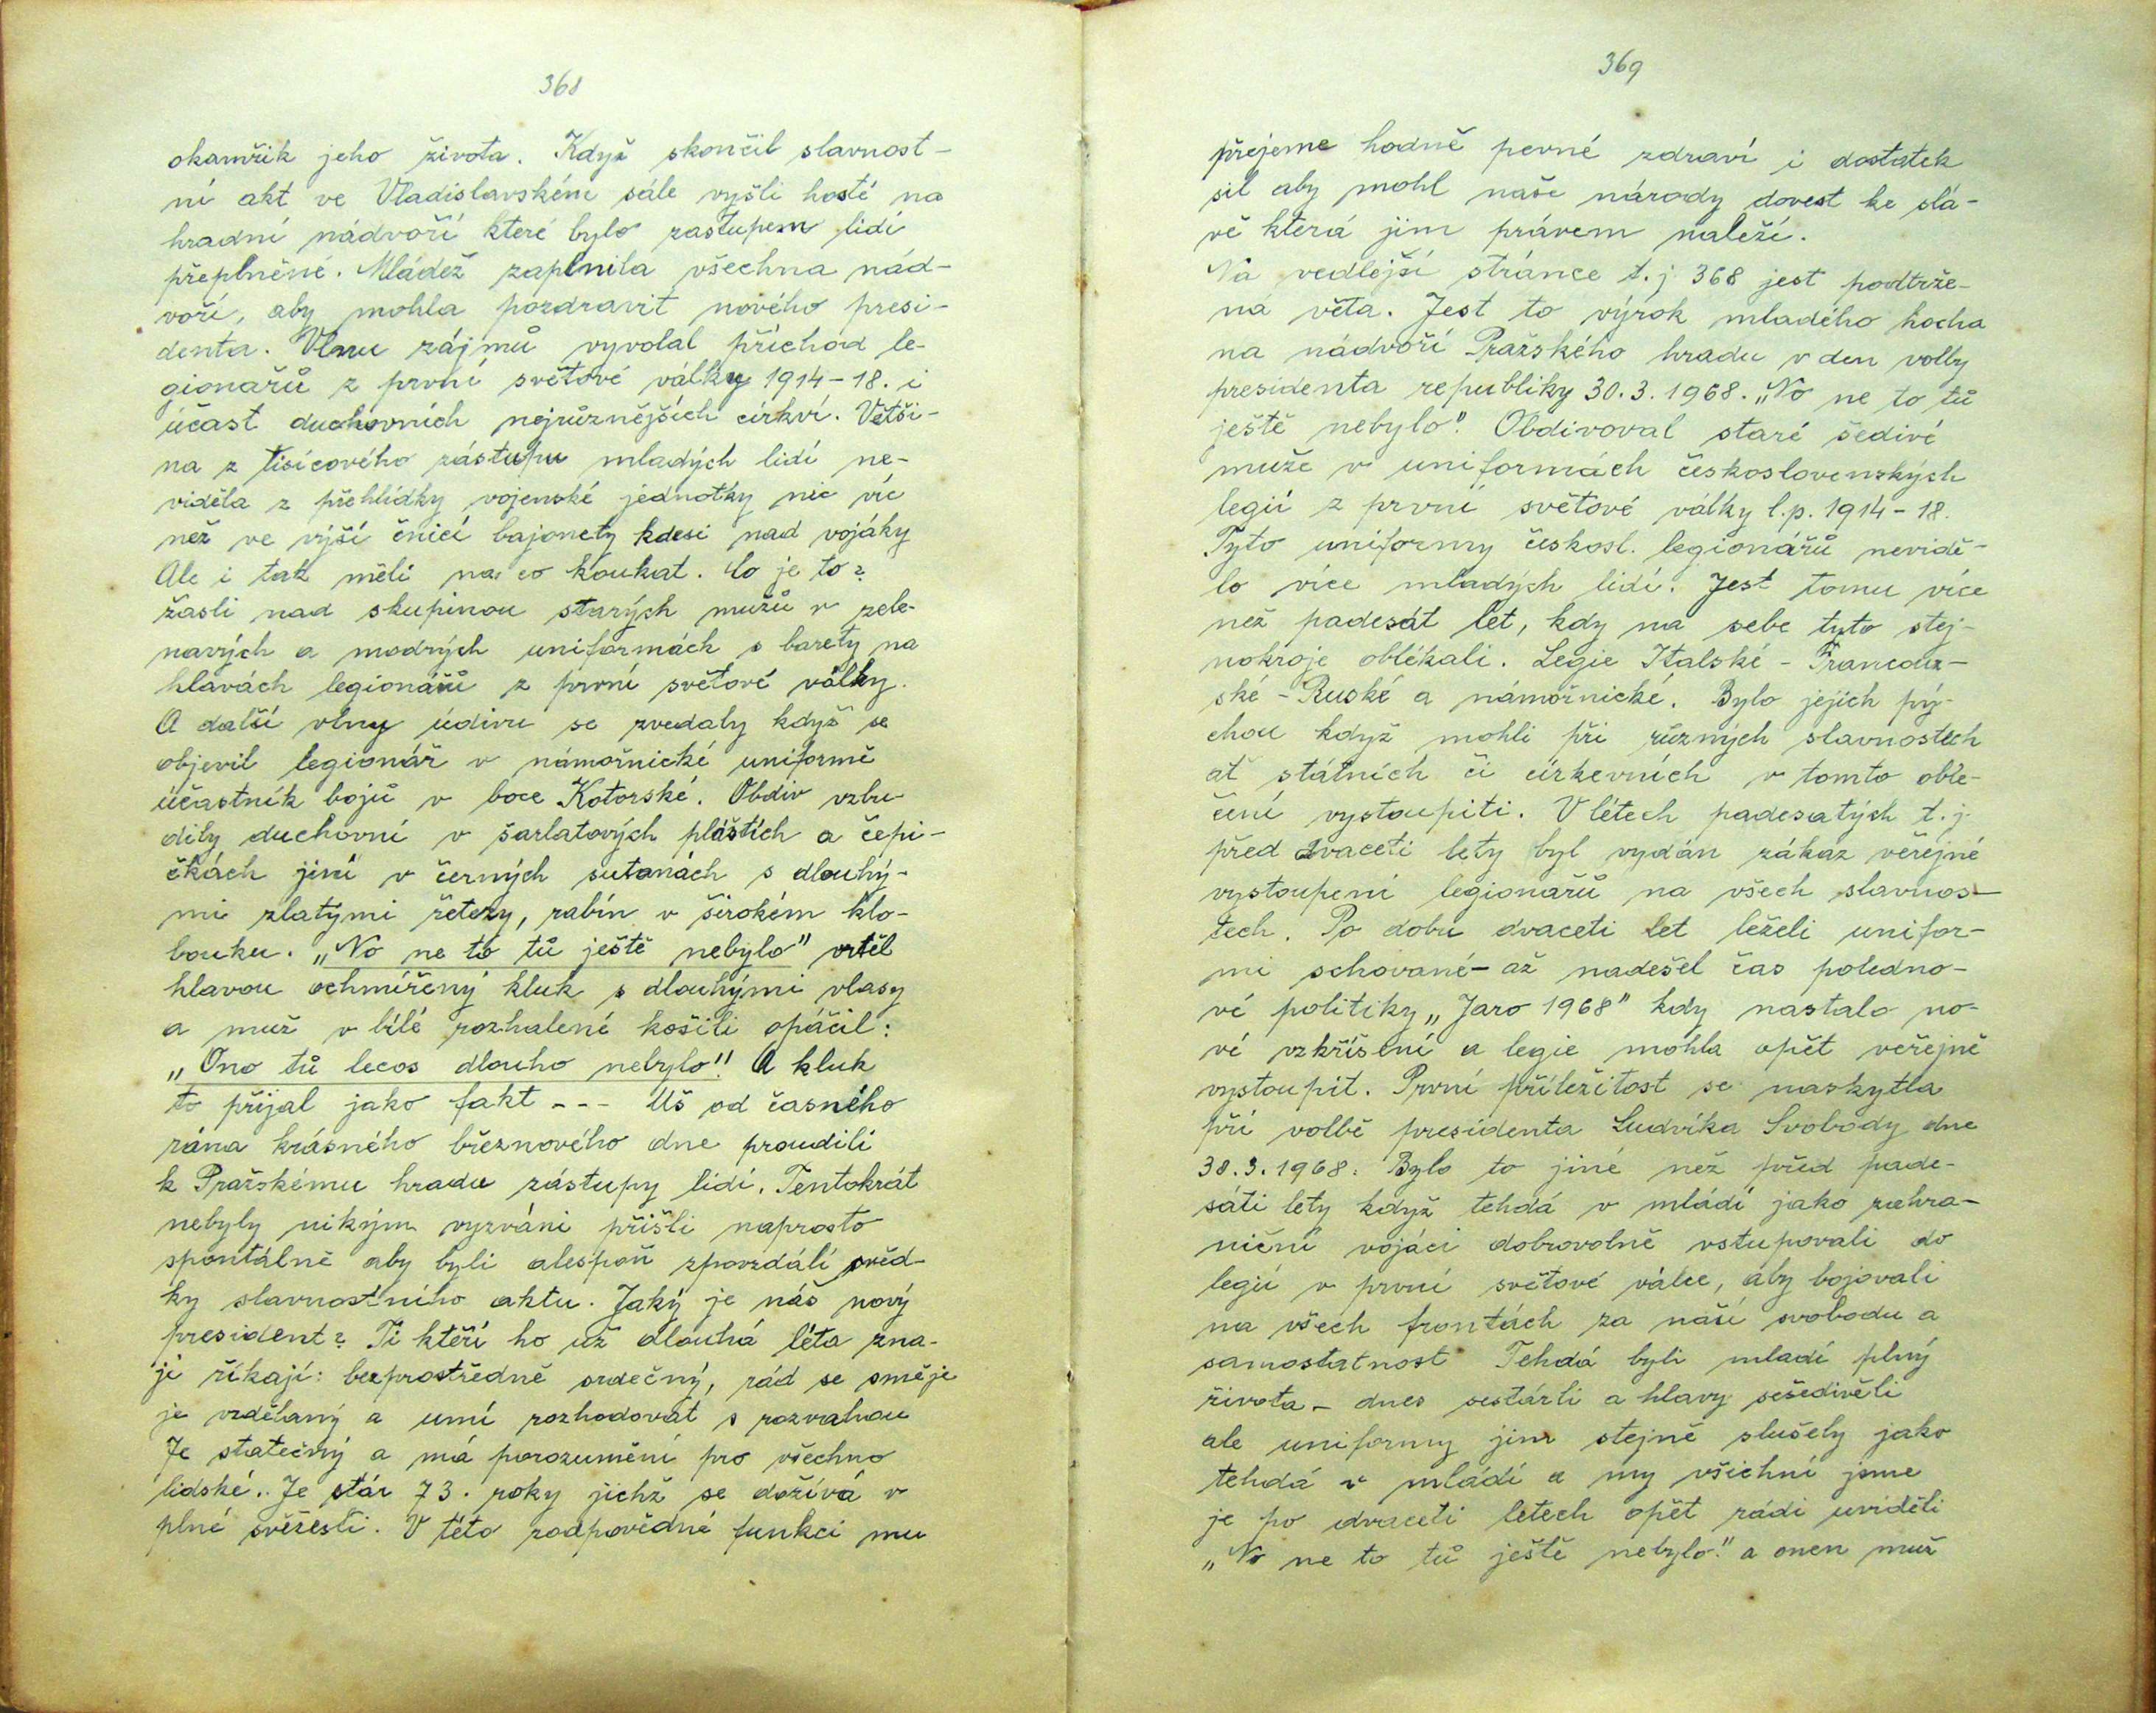 368
okamžik jeho života. Když skončil slavnost-
ní akt ve Vladislavském sále vyšli hosté na
hradní nádvoří které bylo zastupem lidí
přeplněné. Mládež zaplnila všechna nád-
voří, aby mohla pozdravit nového presi-
denta. Vlnu zájmů vyvolal příchod le-
gionařů z první světové války 1914-18. i
účast duchovních nejrůznějších církví. Větši-
na z tisícového zástupu mladých lidí ne-
viděla z přehlídky vojenské jednotky nic víc
než ve výší čnící bajonety kdesi nad vojáky
Ale i tak měli na co koukat. Co je to?
žasli nad skupinou starých mužů v zele-
navých a modrých uniformách s barety na
hlavách legionářů z první světové války.
A další vlny údivu se zvedaly když se
objevil legionář v námořnické uniformě
účastník bojů v boce Kotorské. Obdiv vzbu-
dily duchovní v šarlatových pláštích a čepi-
čkách jiní v černých sutanách s dlouhý-
mi zlatými řetezy, rabín v širokém klo-
bouku. „No ne to tů ještě nebylo" vrtěl
hlavou ochmířený kluk s dlouhými vlasy
a muž v bílé rozhalené košili opáčil:
„Ono tů lecos dlouho nebylo"! A kluk
to přijal jako fakt --- Uš od časného
rána krásného březnového dne proudili
k Pražskému hradu zástupy lidí. Tentokrát
nebyly nikým vyzváni přišli naprosto
spontálně aby byli alespoň zpovzdálí svěd-
ky slavnostního aktu. Jaký je náš nový
president? Ti kteří ho už dlouhá léta zna-
jí říkají: bezprostředně srdečný, rád se směje
je vzdělaný a umí rozhodovat s rozvahou
Je statečný a má porozumění pro všechno
lidské.. Je stár 73. roky jichž se dožívá v
plné svěžesti. V této zodpovědné funkci mu
369
přejeme hodně pevné zdraví i dostatek
sil aby mohl naše národy dovest ke slá-
vě která jim právem naleží.
Na vedlejší stránce t.j 368 jest podtrže-
ná věta. Jest to výrok mladého hocha
na nádvoří Pražského hradu v den volby
presidenta republiky 30.3.1968. „No ne to tů
ještě nebylo". Obdivoval staré šedivé
muže v uniformách československých
legií z první světové války l.p. 1914-18.
Tyto uniformy českosl. legionářů nevidě-
lo více mladých lidí. Jest tomu více
než padesát let, kdy na sebe tyto stej-
nokroje oblékali. Legie Italské - Francouz-
ské - Ruské a námořnické. Bylo jejích pý-
chou když mohli při různých slavnostech
ať státních či církevních v tomto oble-
čení vystoupiti. V létech padesatých t.j.
před dvaceti lety byl vydán zákaz veřejné
vystoupení legionařů na všech slavnos-
tech. Po dobu dvaceti let leželi unifor-
mi schované - až nadešel čas poledno-
vé politiky „Jaro 1968" kdy nastalo no-
vé vzkříšení a legie mohla opět veřejně
vystoupit. První příležitost se naskytla
při volbě presidenta Ludvíka Svobody dne
30.3.1968. Bylo to jiné než před pade-
sáti lety když tehdá v mládí jako zahra-
niční vojáci dobrovolně vstupovali do
legií v první světové válce, aby bojovali
na všech frontách za naší svobodu a
samostatnost Tehdá byli mladí plný
života - dnes sestárli a hlavy sešedivěli
ale uniformy jim stejně slušely jako
tehdá v mládí a my všichni jsme
je po dvaceti letech opět rádi uviděli
„No ne to tů ještě nebylo." a onen muž